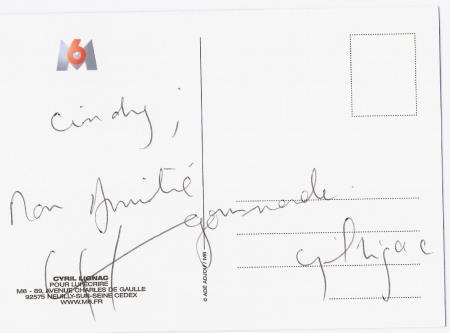 M6
Cindy,
Mon Amitié
gourmande.
CYRIL LIGNAC
POUR LUI ÉCRIRE :
M6 - 89, AVENUE CHARLES DE GAULLE
92575 NEUILLY-SUR-SEINE CEDEX
WWW.M6.FR